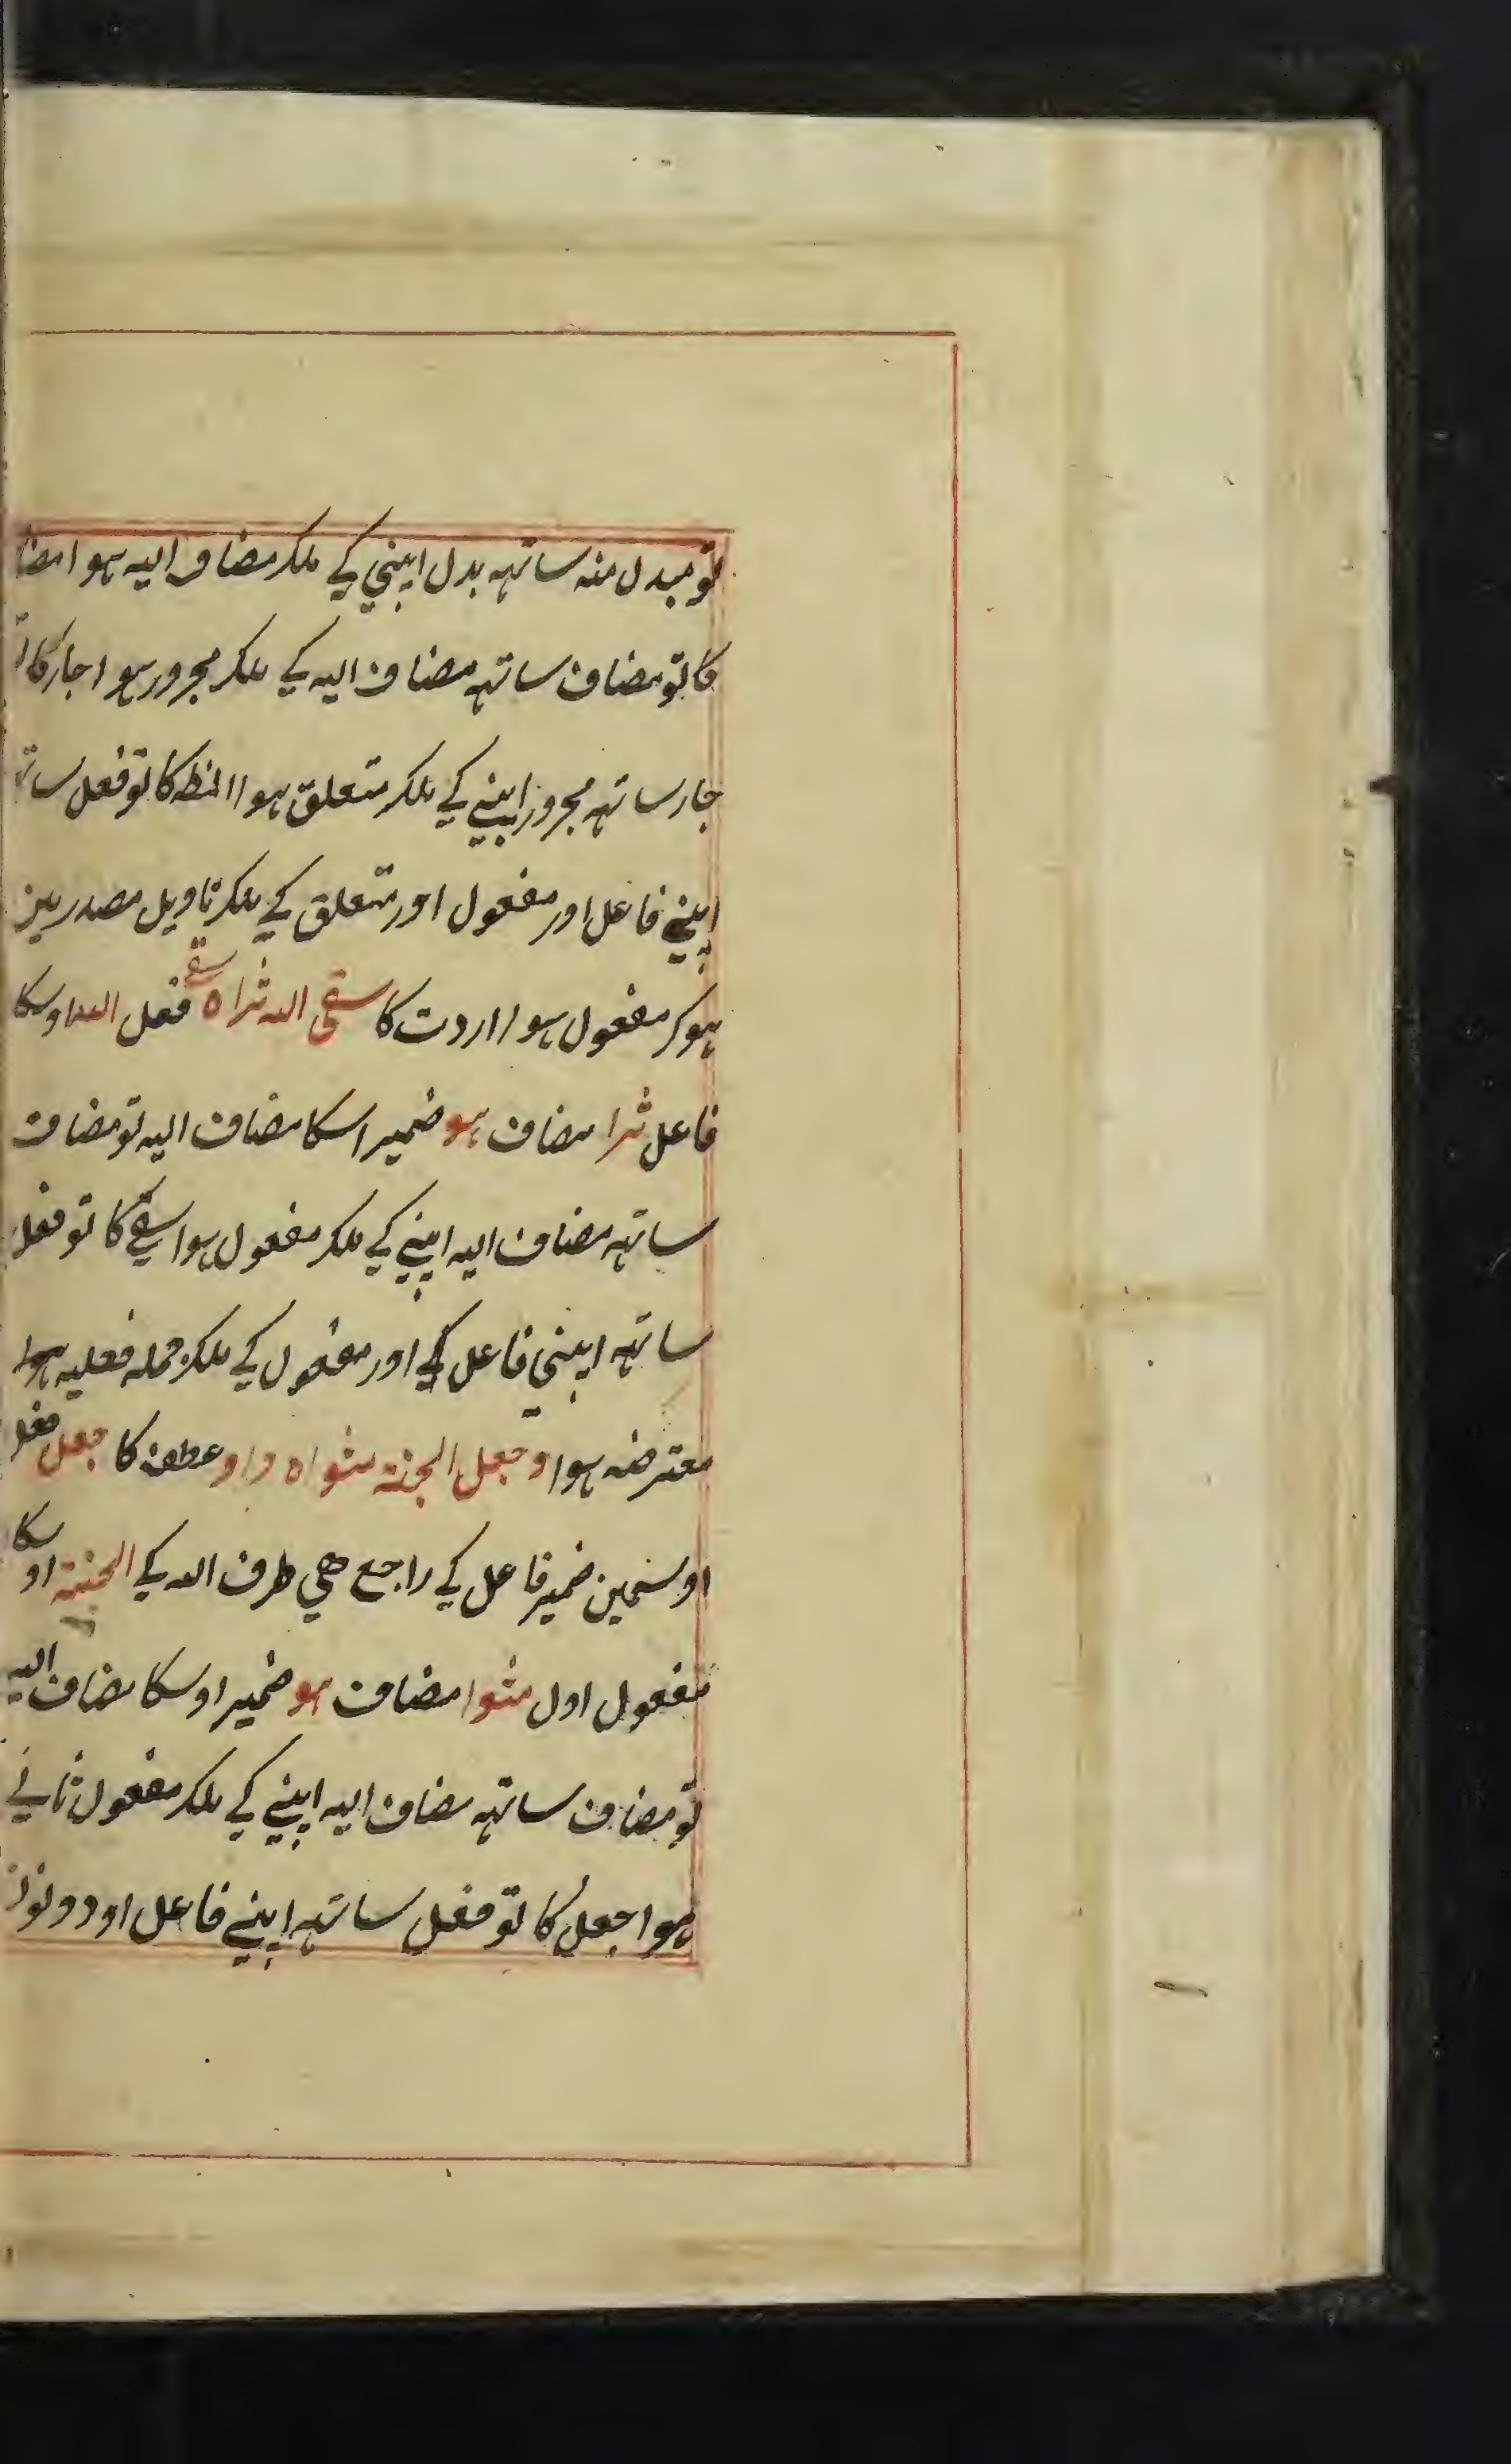 تو مبدل منه ساتهه بدل اپنی کے ملکر مضاف الیه ہوا مضا
کا تو مضاف ساتهه مضاف الیه کے ملکر مجرور ہوا جار کا
جار ساتهه مجرور اپنے کے ملکر متعلق ہوا انظه کا تو فعل سات
اپنے فاعل اور مفعول اور متعلق کے ملکر تاویل مصدر مین
ہوکر مفعول ہوا اردت کا سقی الله ثراه سقے فعل الله اوسکا
فاعل ثرا مضاف ہو ضمیر اسکا مضاف الیه تو مضاف
ساتهه مضاف الیه اپنے کے ملکر مفعول ہوا سقے کا تو فعل
ساتهه اپنی فاعل کے اور مفعول کے ملکر جمله فعلیه ہوا
معترضه ہوا و جعل الجنة مثواه واو عطف کا جعل فعل
اوسمین ضمیر فاعل کے راجع هی طرف الله کے الجنة اوسکا
مفعول اول مثوا مضاف ہو ضمیر اوسکا مضاف الیه
تو مضاف ساتهه مضاف الیه اپنے کے ملکر مفعول ثانے
ہوا جعل کا تو فعل ساتهه اپنے فاعل اور دونو